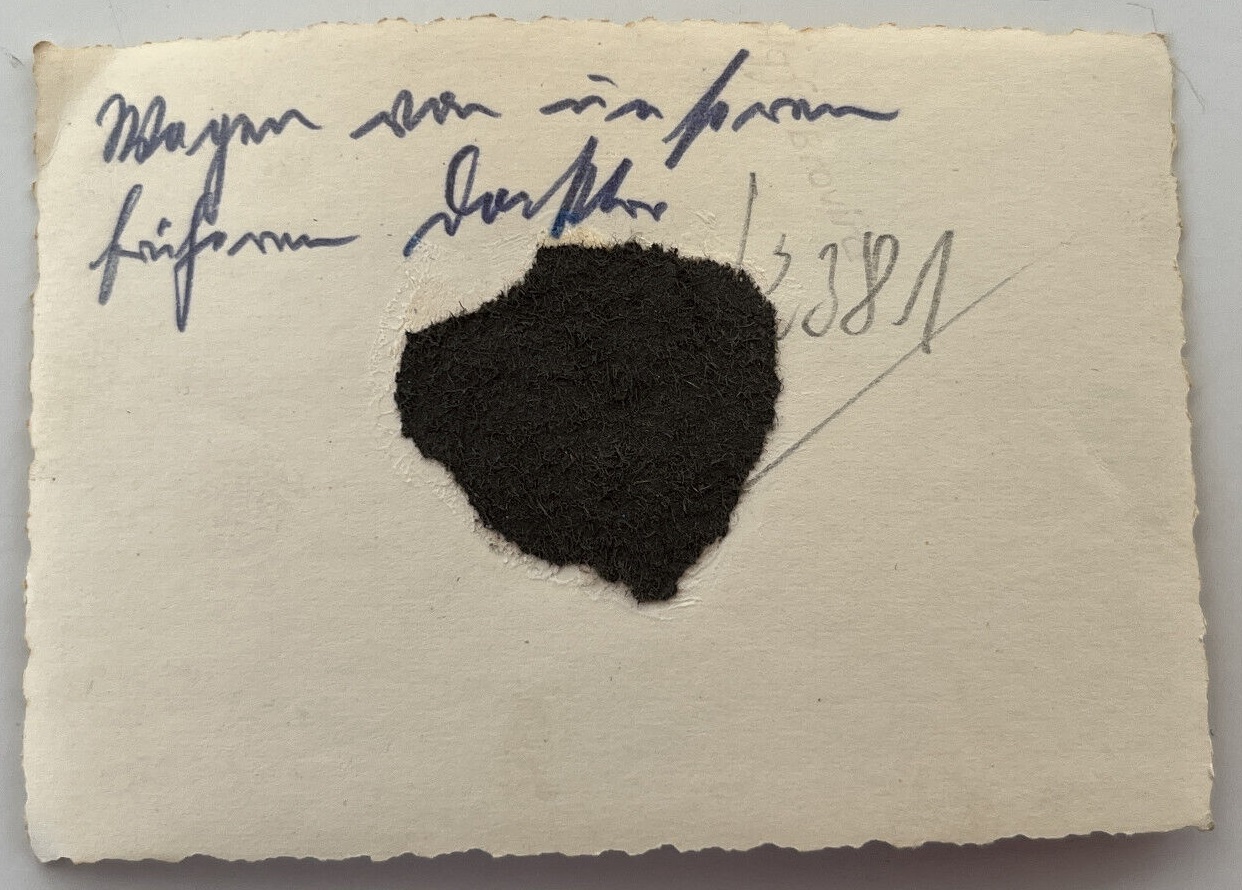 Wagen von unserem
früheren Docktor
381